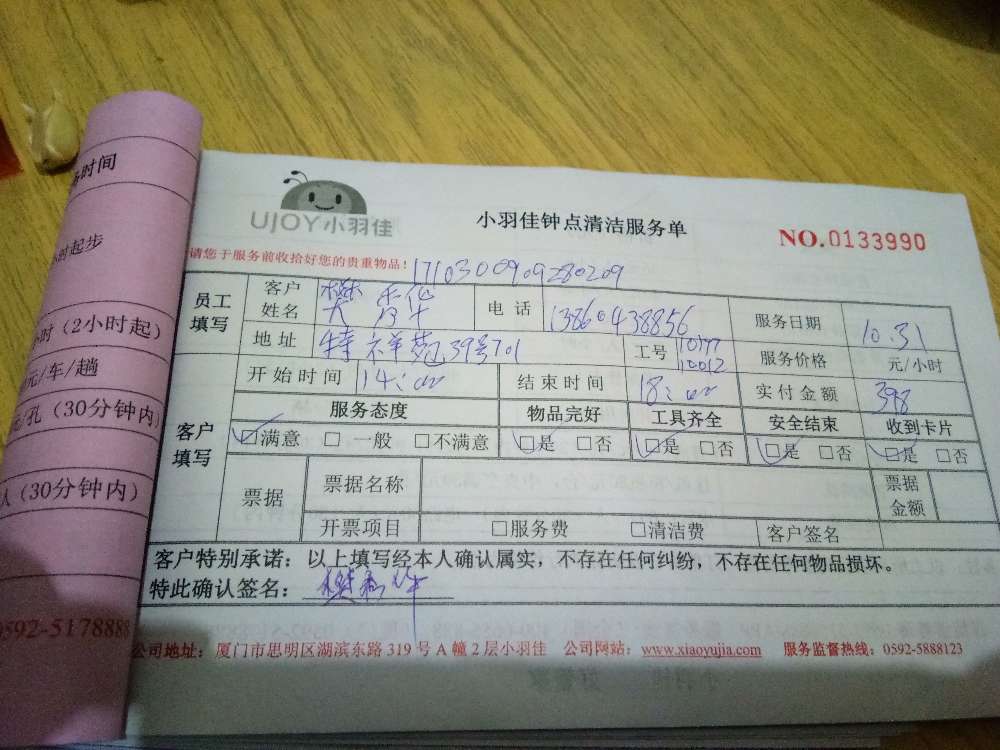 务时间
小时起步
小时（2小时起）
元/车/趟
元/孔（30分钟内）
人（30分钟内）
0592-5178888
UJOY小羽佳
小羽佳钟点清洁服务单
NO.0133990
请您于服务前收拾好您的贵重物品！
1710300909280209
员工填写 客户姓名 樊 电话 13860438856 服务日期 10.31
地址 特祥苑39号701 工号 10177 10012 服务价格 元/小时
开始时间 14:00 结束时间 18:00 实付金额 398
客户填写 服务态度 物品完好 工具齐全 安全结束 收到卡片
☑满意 □一般 □不满意 ☑是 □否 ☑是 □否 ☑是 □否 ☑是 □否
票据 票据名称 票据金额
开票项目 □服务费 □清洁费 客户签名
客户特别承诺：以上填写经本人确认属实，不存在任何纠纷，不存在任何物品损坏。
特此确认签名：
公司地址：厦门市思明区湖滨东路319号A幢2层小羽佳 公司网站：www.xiaoyujia.com 服务监督热线：0592-5888123